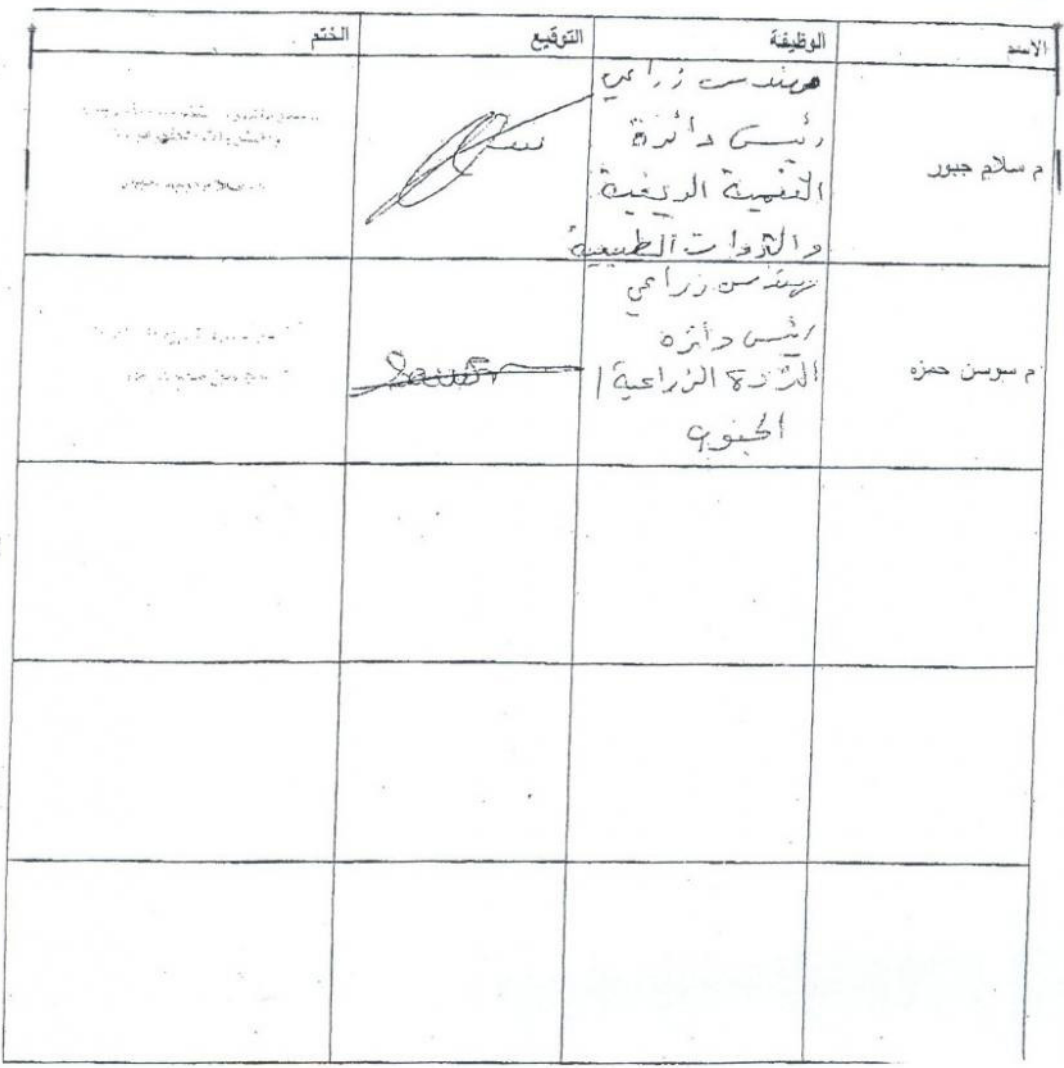 الاسم الوظيفة التوقيع الختم
م سلام جبور
مهندس زراعي
رئيس دائرة
التنمية الريفية
والثروات الطبيعية
م سوسن حمزه
مهندس زراعي
رئيس دائرة
الثروة الزراعية /
الجنوب
Sawsan